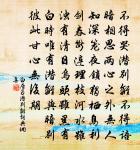 不得哭潛別離不得語
暗相思兩心之外無人
知深籠夜鎖獨棲鳥利
劍春斷連理枝河水雖
濁有清日烏頭雖黑有
白時惟有潛離與暗別
彼此甘心無後期